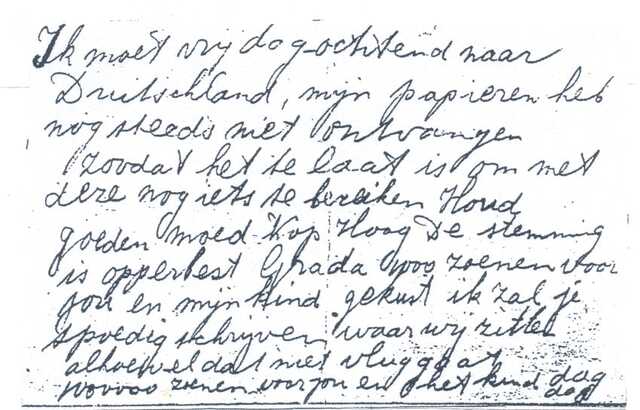 Ik moet vrydag-ochtend naar
Duitschland, mijn papieren heb
nog steeds niet ontvangen
zoodat het te laat is om met
deze nog iets te bereiken Houd
goeden moed Kop Hoog De stemming
is opperbest Grada 1000 zoenen voor
jou en mijn kind gekust ik zal je
spoedig schrijven waar wij zitten
alhoewel dat niet vlug gaat
zoenen voor jou en het kind dag
dag